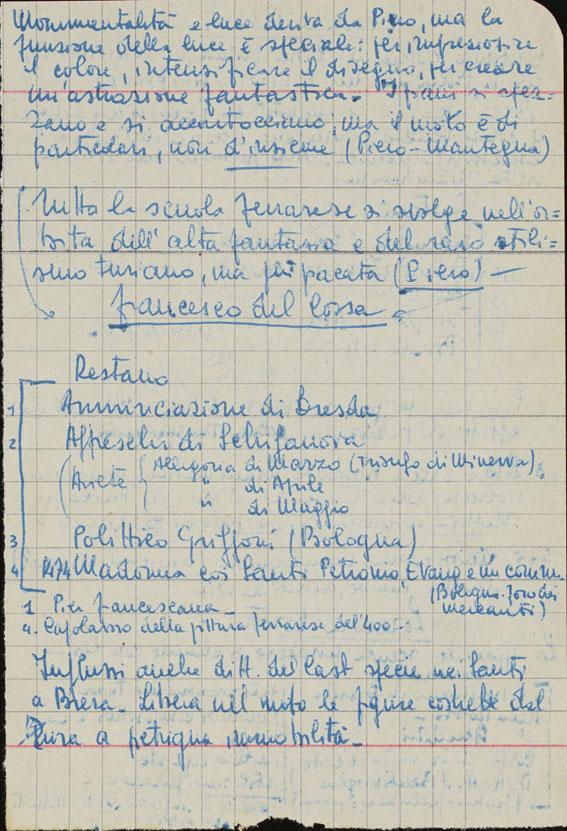 Monumentalità e luce deriva da Piero, ma la
funzione della luce è speciale: per impreziosire
il colore, intensificare il disegno, per creare
un'astrazione fantastica. I piani si spez-
zano e si accartocciano, ma il moto è di
particolari, non d'insieme (Piero-Mantegna)
Tutta la scuola ferrarese si svolge nell'or=
bita dell'alta fantasia e del raro stili=
smo turiano, ma più pacata (Piero) —
Francesco del Cossa
Restano
1 Annunciazione di Dresda
2 Affreschi di Schifanoia
(Ariete { Allegoria di Marzo (Trionfo di Minerva)
" di Aprile
di Maggio
3 Polittico Griffoni (Bologna)
4 1474 Madonna coi Santi Petronio, Evang. e un comm.
(Bologna. Foro dei
mercanti)
1 Pier francescana.
4. Capolavoro della pittura ferrarese del '400.
Influssi anche di A. del Cast. specie nei Santi
a Brera. Libera nel moto le figure costrette dal
Tura a petrigna immobilità.